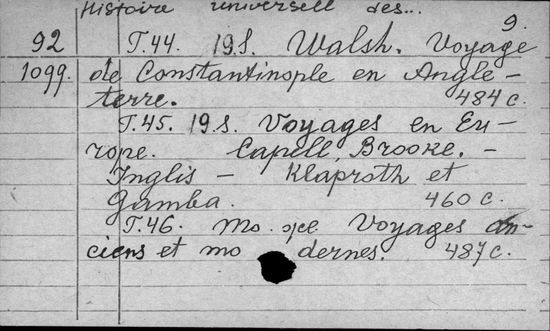 Histoire universell des...
9.
92 T.44. 19.s. Walsh. Voyage
1099. de Constantinople en Angle-
terre. 484 c.
T.45. 19.s. Voyages en Eu-
rope. Capell, Brooke. -
Inglis - Klaproth et
Gamba. 460 c.
T.46. Mo Voyages an-
ciens et mo dernes. 487 c.